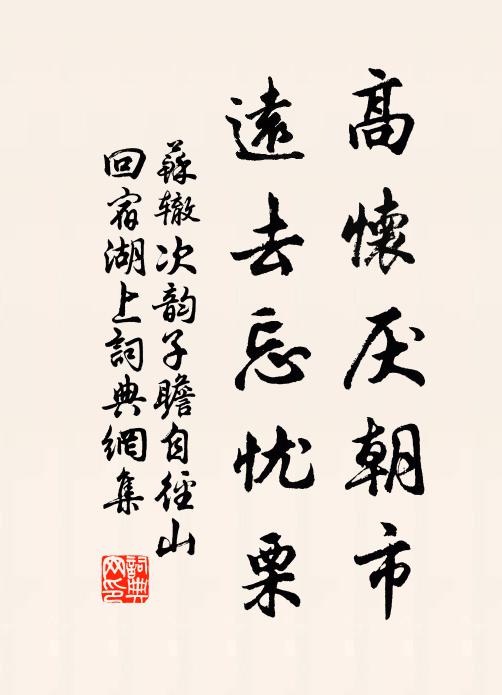 高懷厌朝市
遠去忘忧栗
蘇辙次韵子瞻自徑山
回宿湖上詞典網集
詞典网印